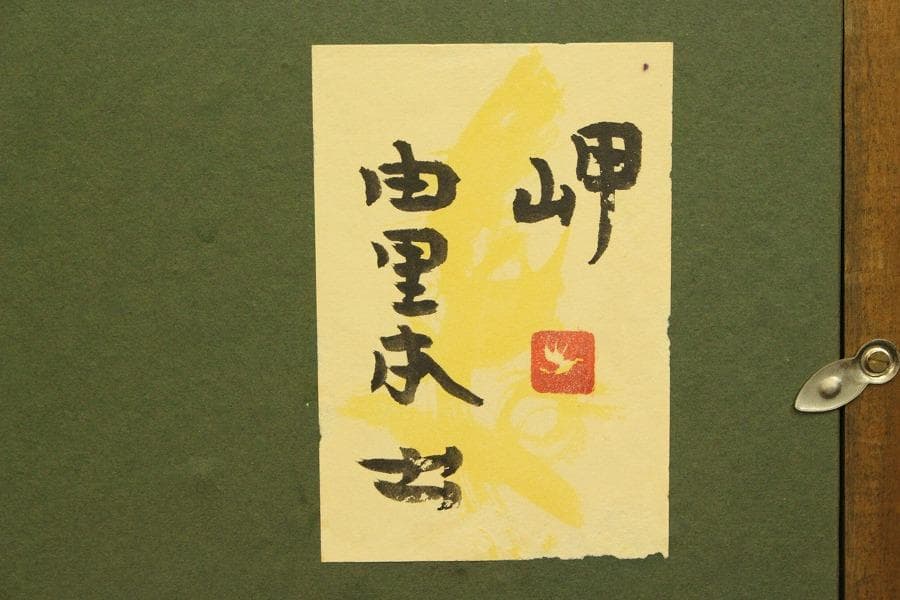 岬
由里本出